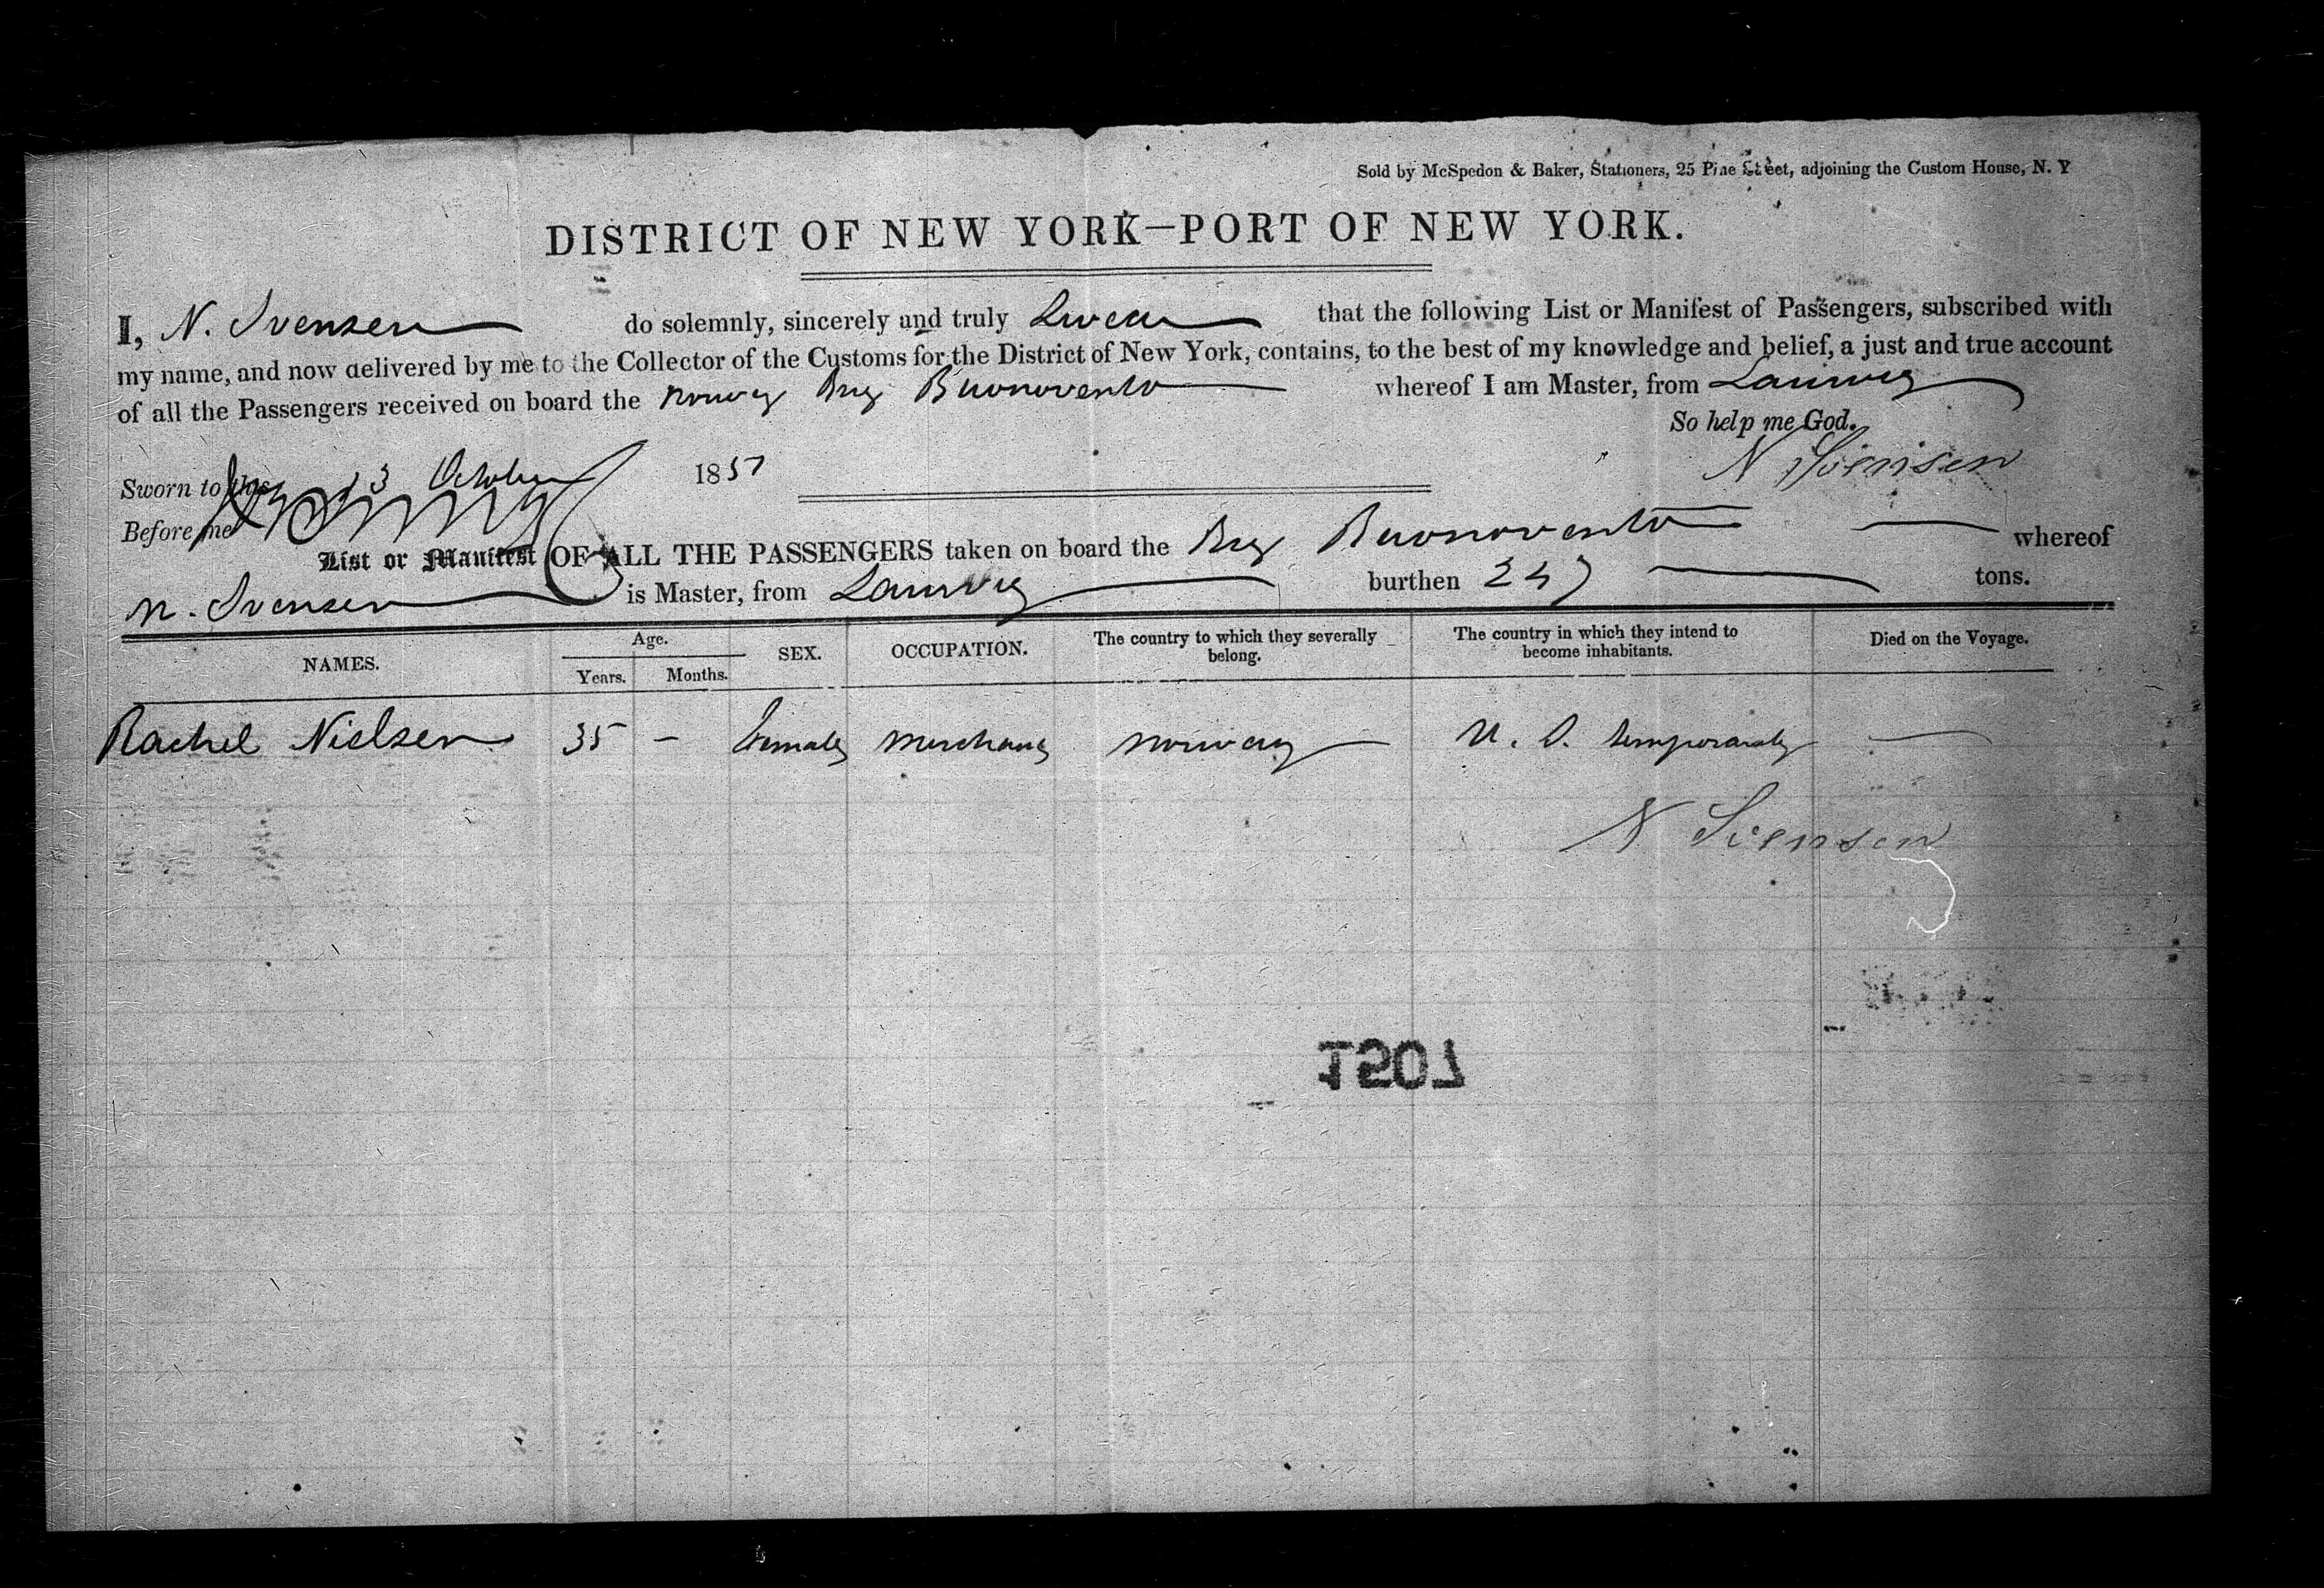 Sold by McSpedon & Baker, Stationers, 25 Pine Street, adjoining the Custom House, N. Y
DISTRICT OF NEW YORK—PORT OF NEW YORK.
I, N. Svensen do solemnly, sincerely and truly Swear that the following List or Manifest of Passengers, subscribed with
my name, and now delivered by me to the Collector of the Customs for the District of New York, contains, to the best of my knowledge and belief, a just and true account
of all the Passengers received on board the Norweg Brig Buonovento whereof I am Master, from Laurvig
So help me God.
Sworn to this 13 October 1851
N Svensen
Before me
List or Manifest OF ALL THE PASSENGERS taken on board the Brig Buonovento whereof
N. Svensen is Master, from Laurvig burthen 247 tons.
NAMES. Age. Years. Months. SEX. OCCUPATION. The country to which they severally belong. The country in which they intend to become inhabitants. Died on the Voyage.
Rachel Nielsen 35 – Female Merchant Norway U. S. temporarily
N Svensen
1507